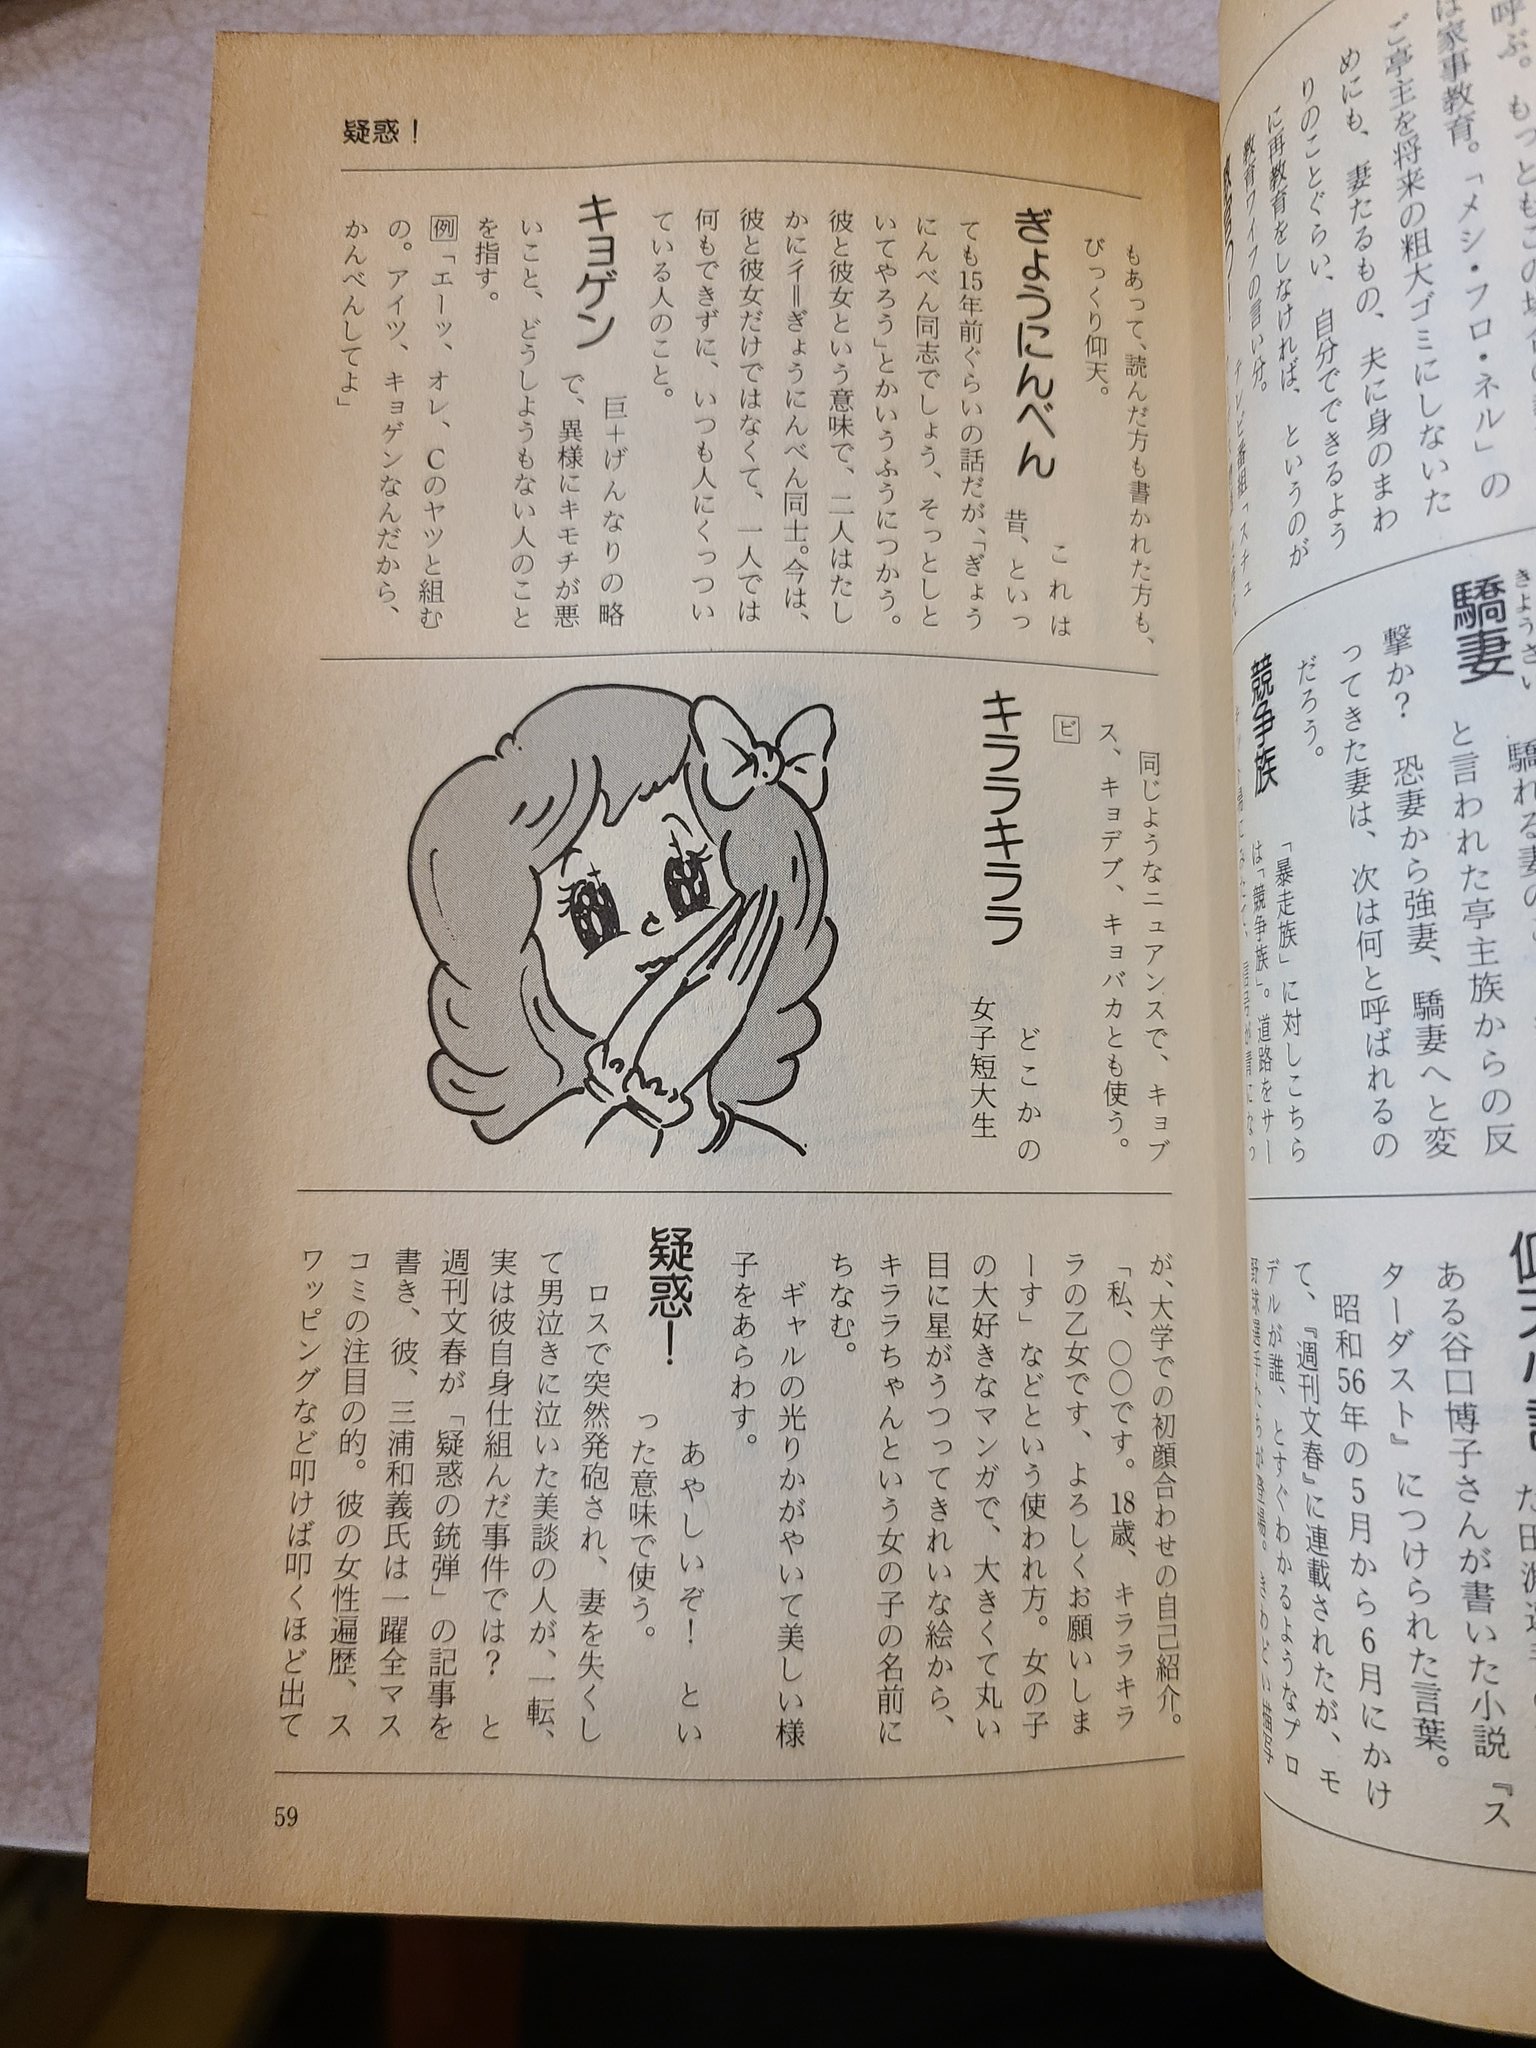 呼ぶ。もっともこの場
は家事教育。「メシ・フロ・ネル」の
ご亭主を将来の粗大ゴミにしないた
めにも、妻たるもの、夫に身のまわ
りのことぐらい、自分でできるよう
に再教育をしなければ、というのが
教育ワイフの言い分。
きょうさい
驕妻
驕れる妻の
と言われた亭主族からの反
撃か?　恐妻から強妻、驕妻へと変
ってきた妻は、次は何と呼ばれるの
だろう。
競争族
「暴走族」に対しこちら
は「競争族」。道路をサー
ある谷口博子さんが書いた小説『ス
ターダスト』につけられた言葉。
昭和56年の5月から6月にかけ
て、『週刊文春』に連載されたが、モ
デルが誰、とすぐわかるようなプロ
疑惑!
もあって、読んだ方も書かれた方も、
びっくり仰天。
ぎょうにんべん
これは
昔、といっ
ても15年前ぐらいの話だが、「ぎょう
にんべん同志でしょう、そっとしと
いてやろう」とかいうふうにつかう。
彼と彼女という意味で、二人はたし
かに彳＝ぎょうにんべん同士。今は、
彼と彼女だけではなくて、一人では
何もできずに、いつも人にくっつい
ている人のこと。
キョゲン
巨＋げんなりの略
で、異様にキモチが悪
いこと、どうしようもない人のこと
を指す。
例「エーッ、オレ、Cのヤツと組む
の。アイツ、キョゲンなんだから、
かんべんしてよ」
同じようなニュアンスで、キョブ
ス、キョデブ、キョバカとも使う。
ビ
キララキララ
どこかの
女子短大生
が、大学での初顔合わせの自己紹介。
「私、○○です。18歳、キララキラ
ラの乙女です、よろしくお願いしま
ーす」などという使われ方。女の子
の大好きなマンガで、大きくて丸い
目に星がうつってきれいな絵から、
キララちゃんという女の子の名前に
ちなむ。
ギャルの光りかがやいて美しい様
子をあらわす。
疑惑!
あやしいぞ!　とい
った意味で使う。
ロスで突然発砲され、妻を失くし
て男泣きに泣いた美談の人が、一転、
実は彼自身仕組んだ事件では?　と
週刊文春が「疑惑の銃弾」の記事を
書き、彼、三浦和義氏は一躍全マス
コミの注目の的。彼の女性遍歴、ス
ワッピングなど叩けば叩くほど出て
59